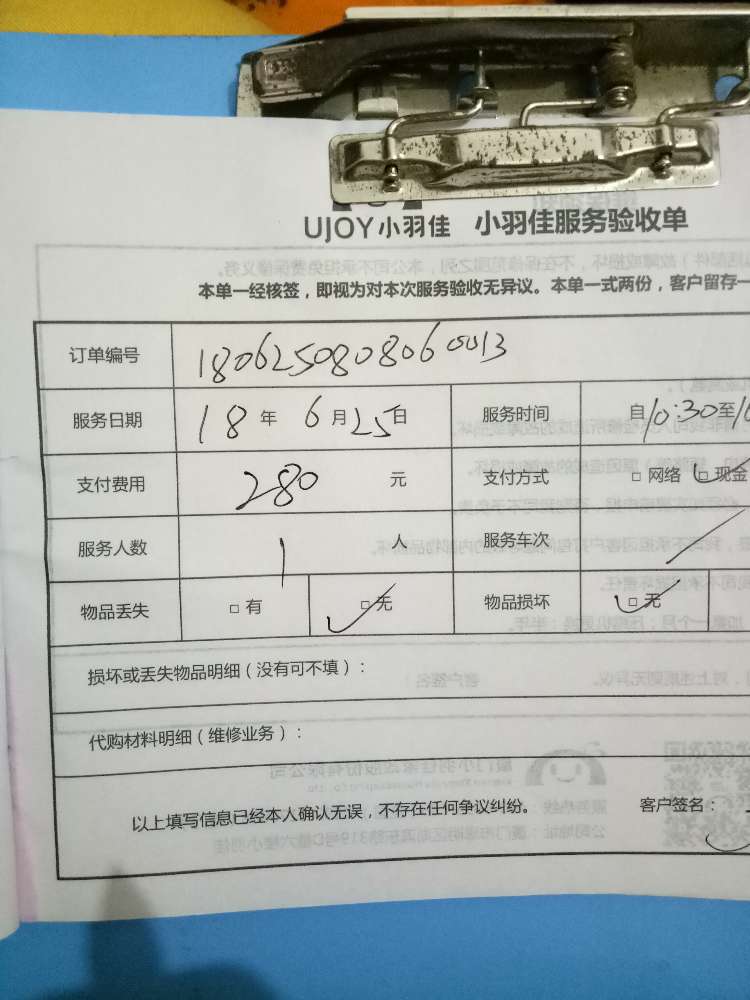 UJOY小羽佳 小羽佳服务验收单
本单一经核签，即视为对本次服务验收无异议。本单一式两份，客户留存一
订单编号 1806250808060013
服务日期 18年 6月25日 服务时间 自10:30至1
支付费用 280 元 支付方式 □ 网络 □ 现金
服务人数 1 人 服务车次 /
物品丢失 □ 有 □ 无 物品损坏 □ 无
损坏或丢失物品明细（没有可不填）：
代购材料明细（维修业务）：
以上填写信息已经本人确认无误，不存在任何争议纠纷。 客户签名：